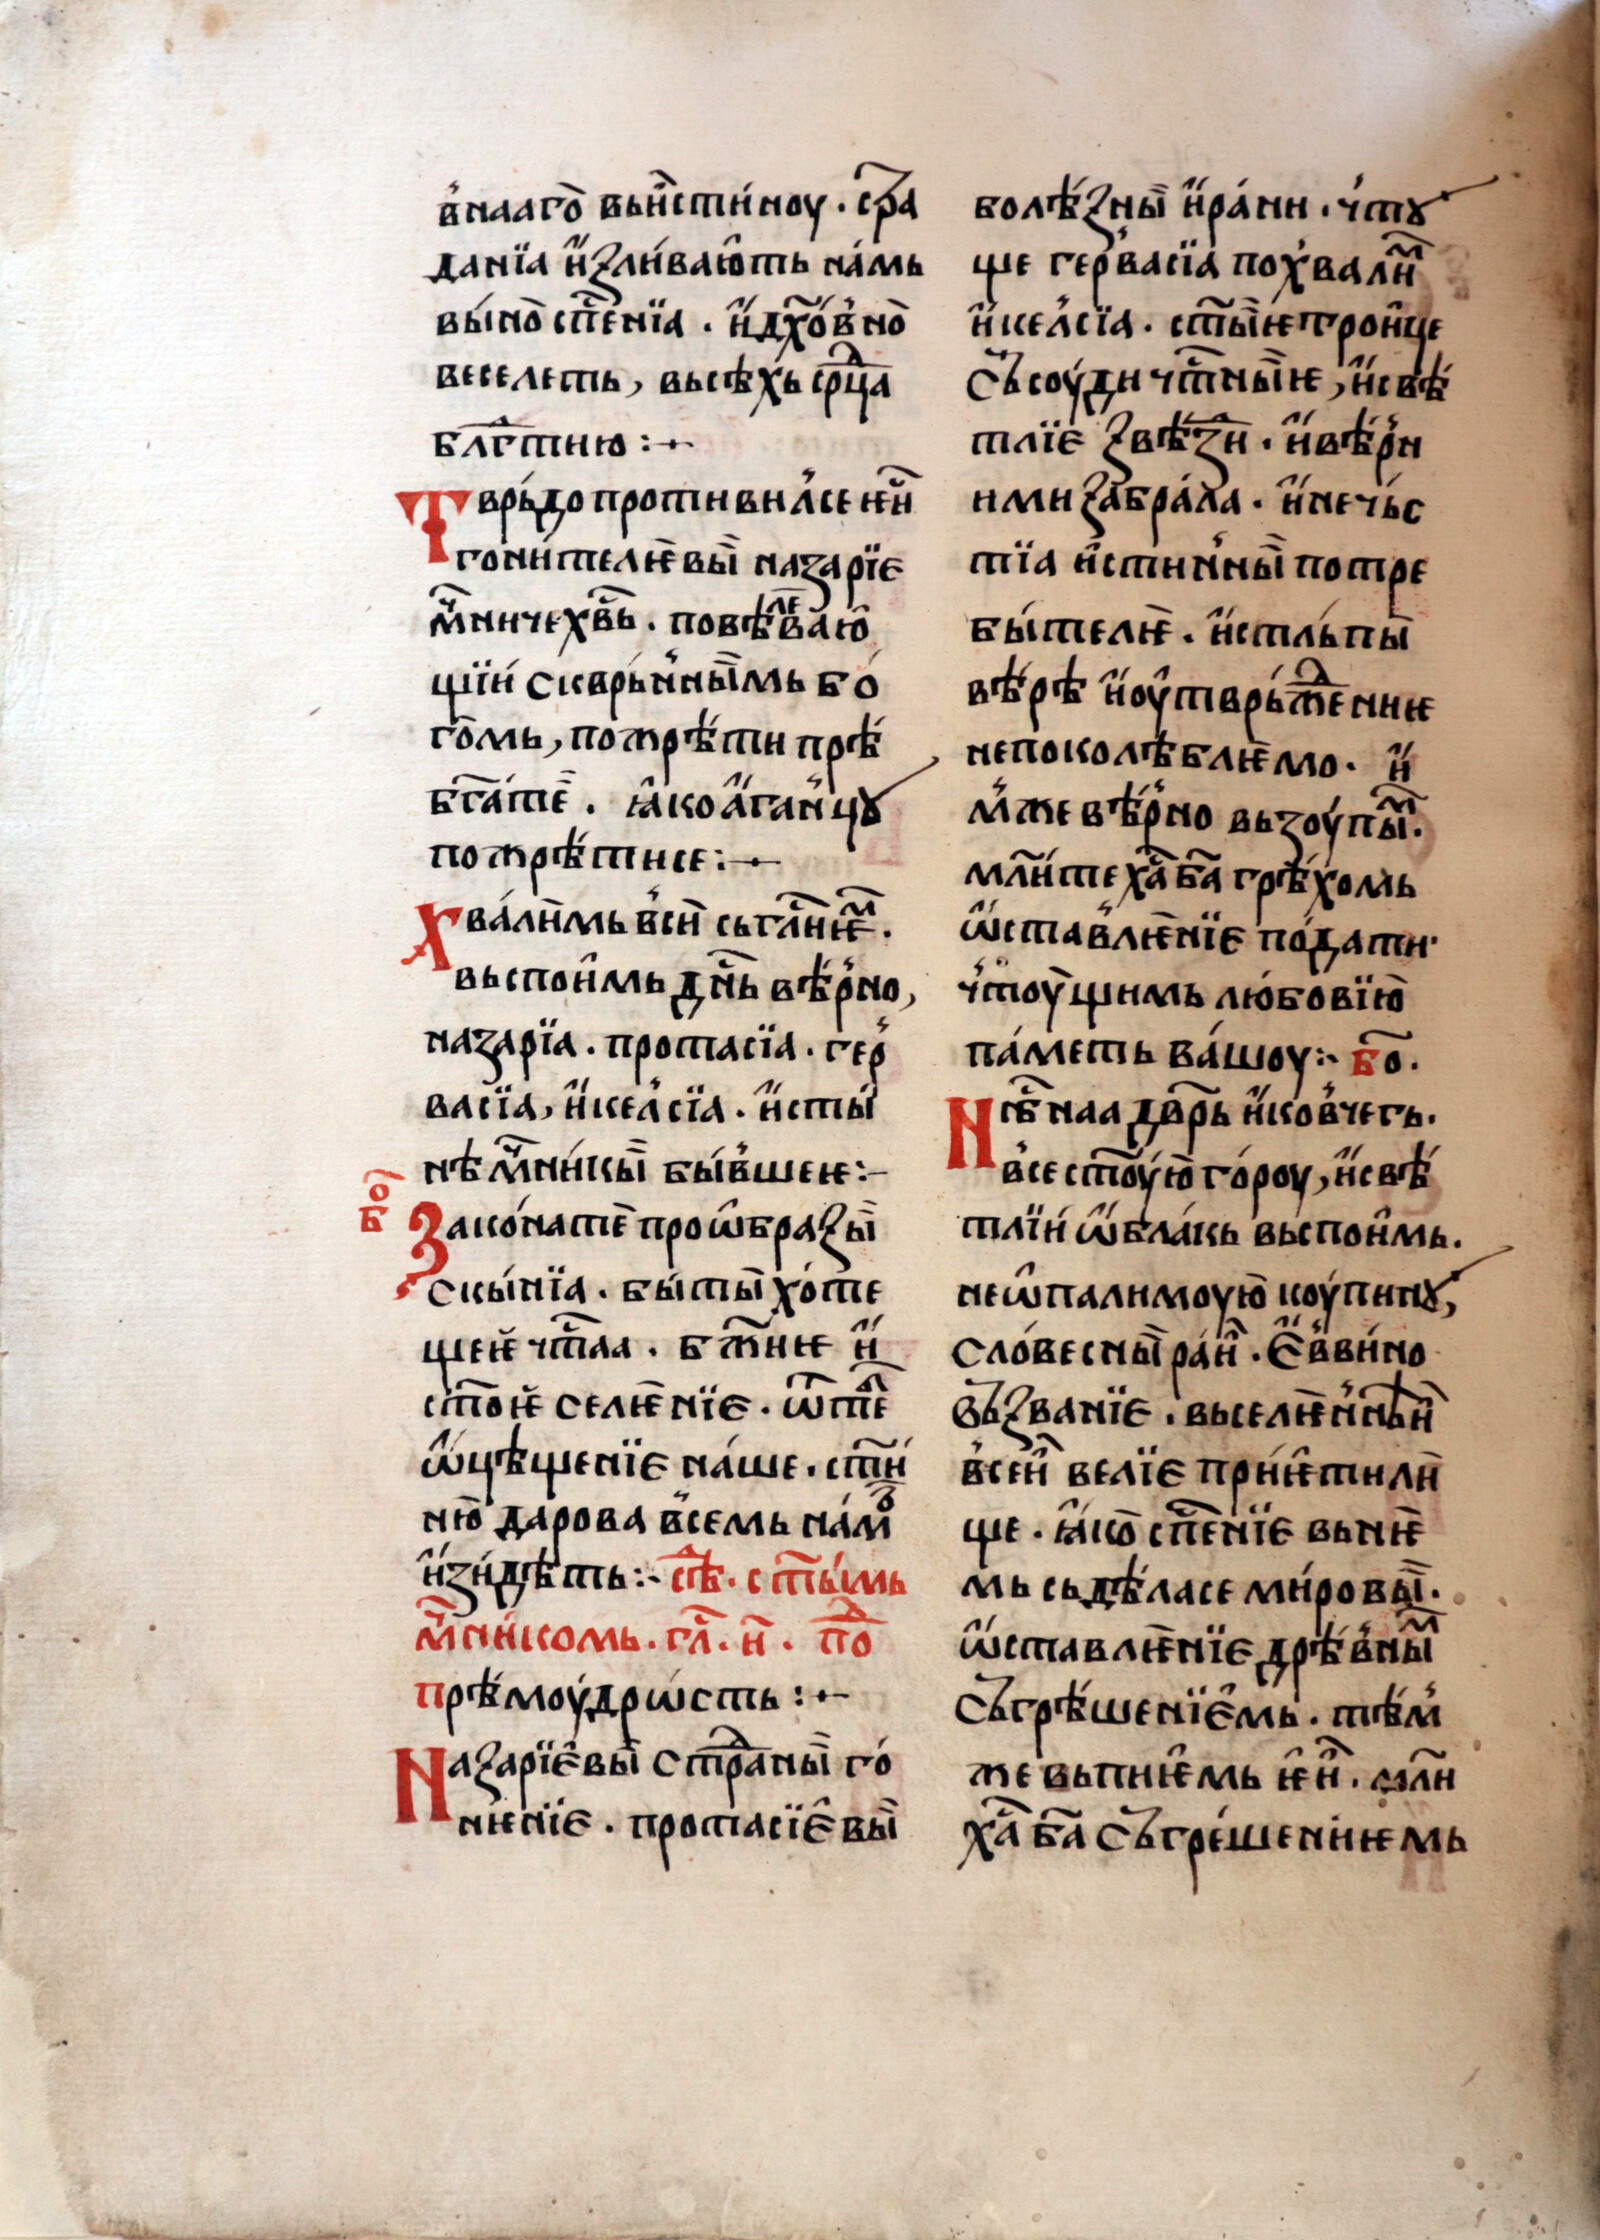 в̾нааго̀ вьи҆́сти́ноу . стр҃а
данїа и҆̀зли́ваю҆ть на́мь
вы́но̀ сп҃е́нїа . и҆̀дх҃о́в̾но̀
веселеть, высѣ́хь ср҃ца
бл҃гⷣтию :⁓
Тврь́до проти ви л̾се ѥи҆̀
гони́телѥ҆вы̀ назарїе
мⷱ҇ничехв҃ь . повѣлева́ю҆
щїи́ скврь́н̾ны̏мь бо́
го́мь, пожрѣ́ти прѣ́
бг҃а́те̏ . ꙗ҆́коа҆́ган̾цꙋ
пожрѣ́тисе :⁓
Хва́лѥ҆мь в̾си҆̀ сь гл҃нїѥⷨ .
вьспои҆мь дн҃ь вѣ́р̾но,
назарїа . протасїа . гер̾
васїа, и҆̀кел̾сїа . и҆̀сты̏
нѣ мⷱ҇ни́кы̏ бы́в̾шеѥ :⁓
бо҃
Зако́нате̏ проѡ҆бразы̏
скы́нїа . бы́ты̏ хо́те
щеѥ̏ чⷭ҇таа . бж҃иѥ и҆̀
ст҃оѥ̏ селѥ́нїе . ѿ тебⷣе
ѡ҆цѣще́нїе на́ше . ст҃и́
ню̀ дарова в̾се́мь на́мⷪ
и҆̀зи́дѣть :⁓ сⷭ҇тѣ . ст҃ы́мь
мⷱ҇ни́комь . гл҃ . н҃ . поⷣ
прѣ́моу́дрѡсть :⁓
Назарїе҆вы̏ стр҃аны̏ го́
нѥ́нїе . протасїе҆вы̏
болѣ́зны̏ и҆̀ра́ни . ч̾тꙋ
ще гер̾васїа пох̾валиⷨ
и҆̀кел̾сїа . ст҃ы́ѥ трои҆це
Съсоу́ди чⷭ҇тны̏ѥ, и҆̀свѣ́
тлїе звѣ́зⷣи . и҆̀вѣ́р̾н
ими за́бра́ла . и҆̀нечь́с
тїа и҆сти́н̾ны̏ потре
бы́телѥ . и҆̀стль́пы̏
вѣ́рѣ и҆̀оу҆тврь́жⷣениѥ
непоколѣ́блѥ҆мо . и҆̀
м̾же вѣ́р̾но вьзоупы̏ⷨ .
мл҃и́те хⷭ҇а́ ба҃ грѣ́хомь
ѡ҆ставлѥ́нїе по́дати·
ч̾тоу̏щимь любовїю̀
па́меть ва́шоу :⁓ бо҃ .
Нбⷭ҇наа дв҃рь и҆̀ков̾чегь .
в̾се ст҃оую̀ го́роу, и҆̀свѣ́
тлїи́ ѡ҆бла́кь вьспои҆мь .
неѡ҆палимоую̀ коупинꙋ,
сло́весны̏ ра́и̏ . Ев̾вино
възва́нїе . вьселѥ́н̾нѣи̏
в̾сеи̏ велїе при́ѥтили̏
ще . ꙗ҆́ко̀ сп҃е́нїе вьнѥ̏
мь сьдѣ́ласе ми́ровы̏ .
ѡ҆ставлѥ́нїе дрѣ́в̾ны̏ⷨ
Съгрѣ́шенїе҆мь . тѣ́м̾
же вьпиѥ҆мь ѥи҆̀ . мл҃и
хⷭ҇а́ ба҃ Съгре́шениѥмь